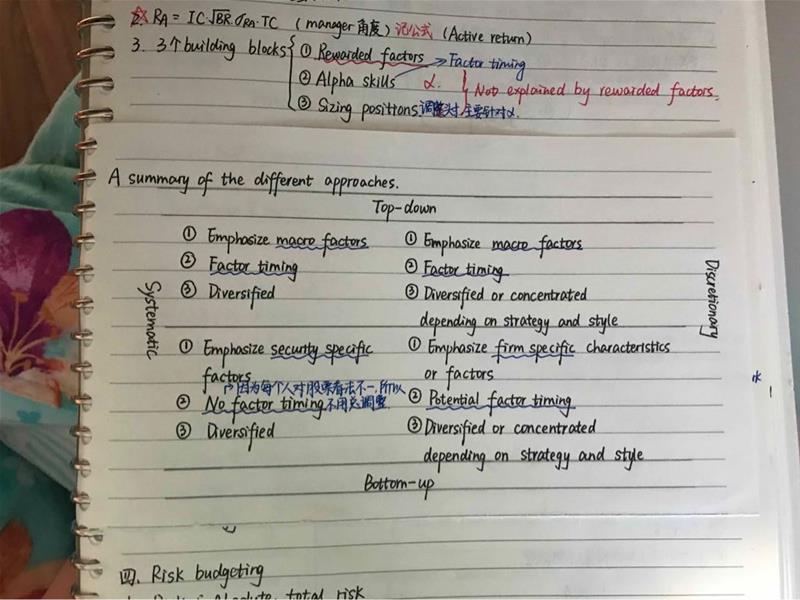 2. RA = IC√BR·σRA·TC (manager角度) 记公式 (Active return)
3. 3个building blocks
① Rewarded factors → Factor timing
② Alpha skills α. Not explained by rewarded factors.
③ Sizing positions. 主要针对α.
A summary of the different approaches.
Top-down
Systematic
① Emphasize macro factors
② Factor timing
③ Diversified
① Emphasize macro factors
② Factor timing
③ Diversified or concentrated
depending on strategy and style
Discretionary
① Emphasize security specific
factors
因为每个人对股票看法不一,所以
② No factor timing 不用总调整
③ Diversified
① Emphasize firm specific characteristics
or factors
② Potential factor timing
③ Diversified or concentrated
depending on strategy and style
Bottom-up
四. Risk budgeting
absolute total risk